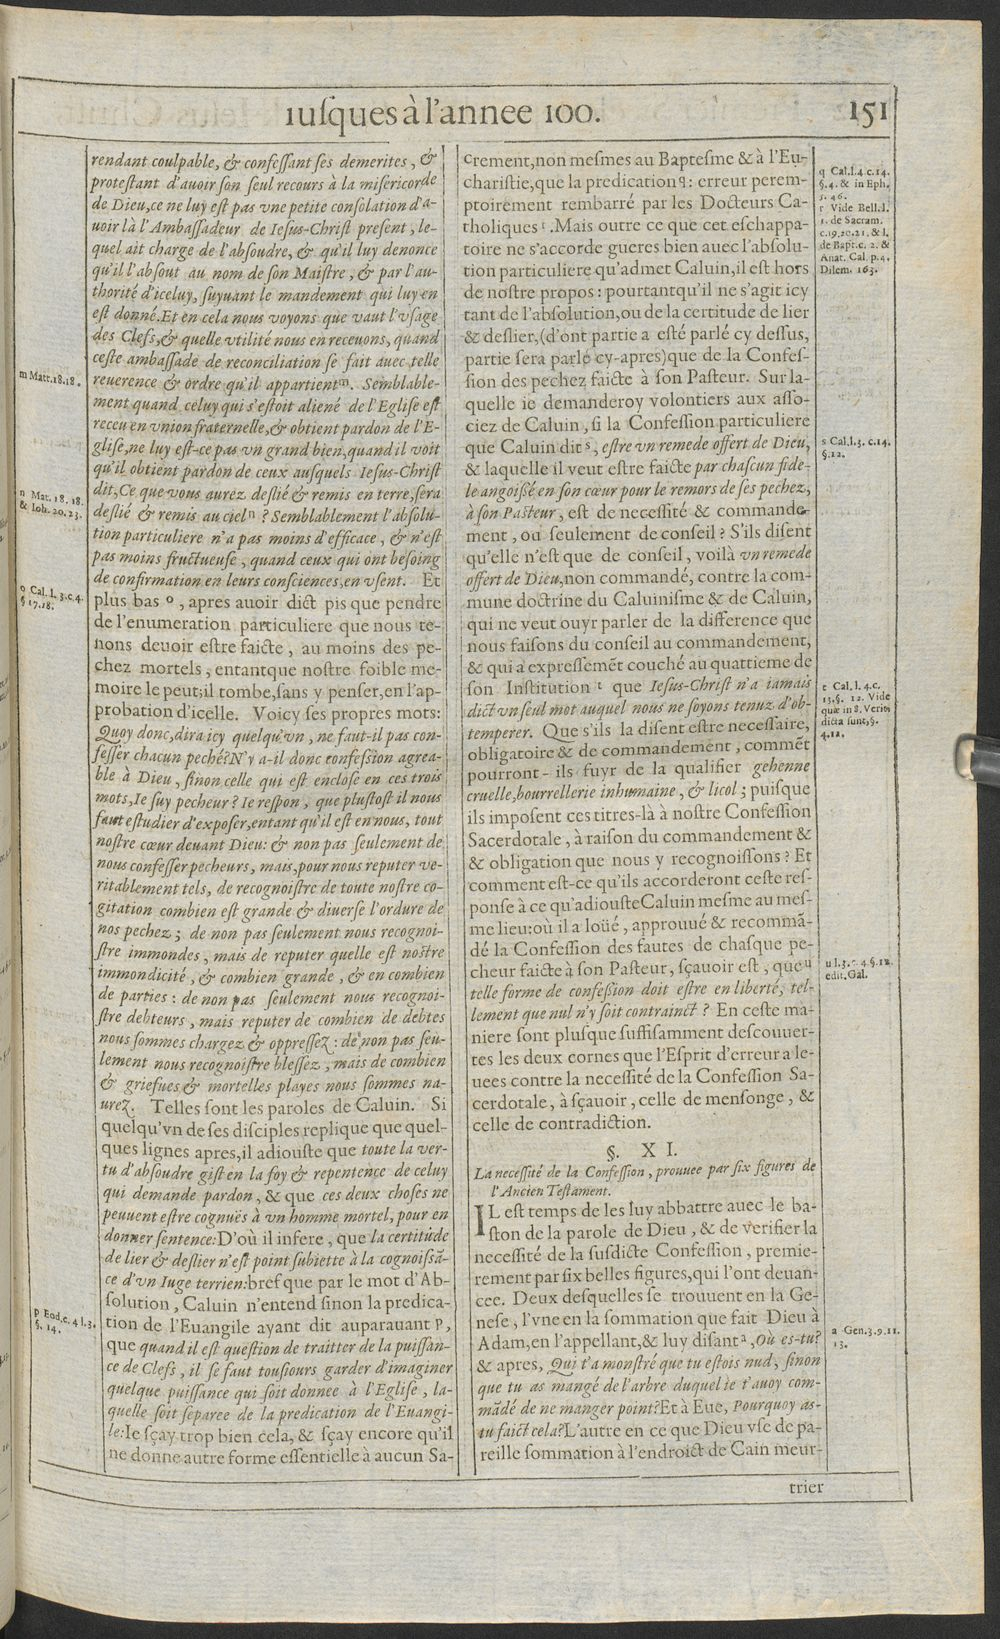 iusques à l'annee 100.
151
rendant coulpable, & confessant ses demerites, &
protestant d'auoir son seul recours à la misericorde
de Dieu, ce ne luy est pas vne petite consolation d'a-
uoir là l'Ambassadeur de Iesus-Christ present, le-
quel ait charge de l'absoudre, & qu'il luy denonce
qu'il l'absout au nom de son Maistre, & par l'au-
thorité d'iceluy, suyuant le mandement qui luy en
est donné. Et en cela nous voyons que vaut l'vsage
des Clefs, & quelle vtilité nous en receuons, quand
ceste ambassade de reconciliation se fait auec telle
reuerence & ordre qu'il appartient m. Semblable-
ment quand celuy qui s'estoit aliené de l'Eglise est
receu en vnion fraternelle, & obtient pardon de l'E-
glise, ne luy est-ce pas vn grand bien, quand il voit
qu'il obtient pardon de ceux ausquels Iesus-Christ
dit, Ce que vous aurez deslié & remis en terre, sera
deslié & remis au ciel n ? Semblablement l'absolu-
tion particuliere n'a pas moins d'efficace, & n'est
pas moins fructueuse, quand ceux qui ont besoing
de confirmation en leurs consciences, en vsent. Et
plus bas o, apres auoir dict pis que pendre
de l'enumeration particuliere que nous te-
nons deuoir estre faicte, au moins des pe-
chez mortels, entantque nostre foible me-
moire le peut; il tombe, sans y penser, en l'ap-
probation d'icelle. Voicy ses propres mots:
Quoy donc, dira icy quelqu'vn, ne faut-il pas con-
fesser chacun peché? N'y a-il donc confession agrea-
ble à Dieu, sinon celle qui est enclose en ces trois
mots, Ie suy pecheur? Ie respon, que plustost il nous
faut estudier d'exposer, entant qu'il est en nous, tout
nostre cœur deuant Dieu: & non pas seulement de
nous confesser pecheurs, mais, pour nous reputer ve-
ritablement tels, de recognoistre de toute nostre co-
gitation combien est grande & diuerse l'ordure de
nos pechez; de non pas seulement nous recognoi-
stre immondes, mais de reputer quelle est nostre
immondicité, & combien grande, & en combien
de parties: de non pas seulement nous recognoi-
stre debteurs, mais reputer de combien de debtes
nous sommes chargez & oppressez: de non pas seu-
lement nous recognoistre blessez, mais de combien
& griefues & mortelles playes nous sommes na-
urez. Telles sont les paroles de Caluin. Si
quelqu'vn de ses disciples replique que quel-
ques lignes apres, il adiouste que toute la ver-
tu d'absoudre gist en la foy & repentence de celuy
qui demande pardon, & que ces deux choses ne
peuuent estre cognuës à vn homme mortel, pour en
donner sentence: D'où il infere, que la certitude
de lier & deslier n'est point subiette à la cognoissã-
ce d'vn Iuge terrien: bref que par le mot d'Ab-
solution, Caluin n'entend sinon la predica-
tion de l'Euangile ayant dit auparauant p,
que quand il est question de traitter de la puissan-
ce de Clefs, il se faut tousiours garder d'imaginer
quelque puissance qui soit donnee à l'Eglise, la-
quelle soit separee de la predication de l'Euangi-
le: Ie sçay trop bien cela, & sçay encore qu'il
ne donne autre forme essentielle à aucun Sa-
m Matt. 18. 18.
n Mat. 18. 18.
& Ioh. 20. 23.
o Cal. l. 3. c. 4.
§ 17. 18.
p Eod. c. 4 l. 3.
§. 14.
crement, non mesmes au Baptesme & à l'Eu-
charistie, que la predication q: erreur perem-
ptoirement rembarré par les Docteurs Ca-
tholiques r. Mais outre ce que cet eschappa-
toire ne s'accorde gueres bien auec l'absolu-
tion particuliere qu'admet Caluin, il est hors
de nostre propos: pourtant qu'il ne s'agit icy
tant de l'absolution, ou de la certitude de lier
& deslier, (d'ont partie a esté parlé cy dessus,
partie sera parlé cy-apres) que de la Confes-
sion des pechez faicte à son Pasteur. Sur la-
quelle ie demanderoy volontiers aux asso-
ciez de Caluin, si la Confession particuliere
que Caluin dit s, estre vn remede offert de Dieu,
& laquelle il veut estre faicte par chascun fide-
le angoissé en son cœur pour le remors de ses pechez,
à son Pasteur, est de necessité & commande-
ment, ou seulement de conseil? S'ils disent
qu'elle n'est que de conseil, voilà vn remede
offert de Dieu, non commandé, contre la com-
mune doctrine du Caluinisme & de Caluin,
qui ne veut ouyr parler de la difference que
nous faisons du conseil au commandement,
& qui a expressemẽt couché au quattrieme de
son Institution t que Iesus-Christ n'a iamais
dict vn seul mot auquel nous ne soyons tenuz d'ob-
temperer. Que s'ils la disent estre necessaire,
obligatoire & de commandement, commẽt
pourront-ils fuyr de la qualifier gehenne
cruelle, bourrellerie inhumaine, & licol; puisque
ils imposent ces titres-là à nostre Confession
Sacerdotale, à raison du commandement &
& obligation que nous y recognoissons? Et
comment est-ce qu'ils accorderont ceste res-
ponse à ce qu'adiouste Caluin mesme au mes-
me lieu: où il a loüé, approuué & recommã-
dé la Confession des fautes de chasque pe-
cheur faicte à son Pasteur, sçauoir est, que u
telle forme de confession doit estre en liberté, tel-
lement que nul n'y soit contrainct? En ceste ma-
niere sont plusque suffisamment descouuer-
tes les deux cornes que l'Esprit d'erreur a le-
uees contre la necessité de la Confession Sa-
cerdotale, à sçauoir, celle de mensonge, &
celle de contradiction.
§. XI.
La necessité de la Confession, prouuee par six figures de
l'Ancien Testament.
IL est temps de les luy abbattre auec le ba-
ston de la parole de Dieu, & de verifier la
necessité de la susdicte Confession, premie-
rement par six belles figures, qui l'ont deuan-
cee. Deux desquelles se trouuent en la Ge-
nese, l'vne en la sommation que fait Dieu à
Adam, en l'appellant, & luy disant a, Où es-tu?
& apres, Qui t'a monstré que tu estois nud, sinon
que tu as mangé de l'arbre duquel ie t'auoy com-
mãdé de ne manger point? Et à Eue, Pourquoy as-
tu faict cela? L'autre en ce que Dieu vse de pa-
reille sommation à l'endroict de Cain meur-
trier
q Cal. l. 4 c. 14.
§. 4. & in Eph.
5. 46.
r Vide Bell. l.
1. de Sacram.
c. 19. 20. 21. & l.
de Bapt. c. 2. &
Anat. Cal. p. 4.
Dilem. 163.
s Cal. l. 3. c. 14.
§. 12.
t Cal. l. 4. c.
13. §. 12. Vide
quæ in 8. Verit.
dicta sunt, §.
4. 12.
u l. 3. c. 4. §. 12.
edit. Gal.
a Gen. 3. 9. 11.
13.